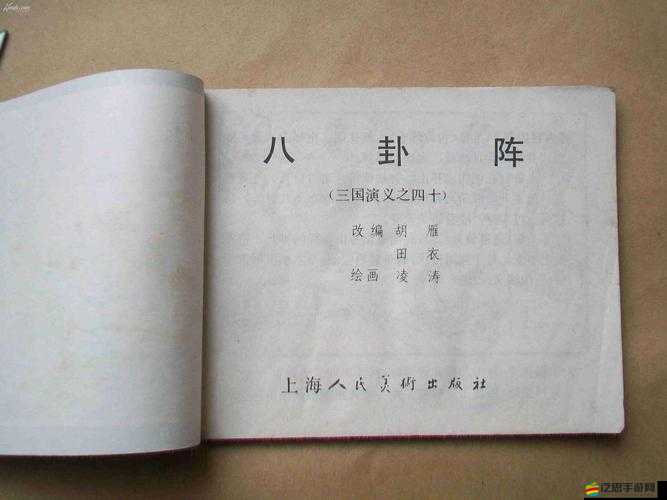 八卦阵
（三国演义之四十）
改编 胡雁
田衣
绘画 凌涛
上海人民美術出版社
泛思手游网